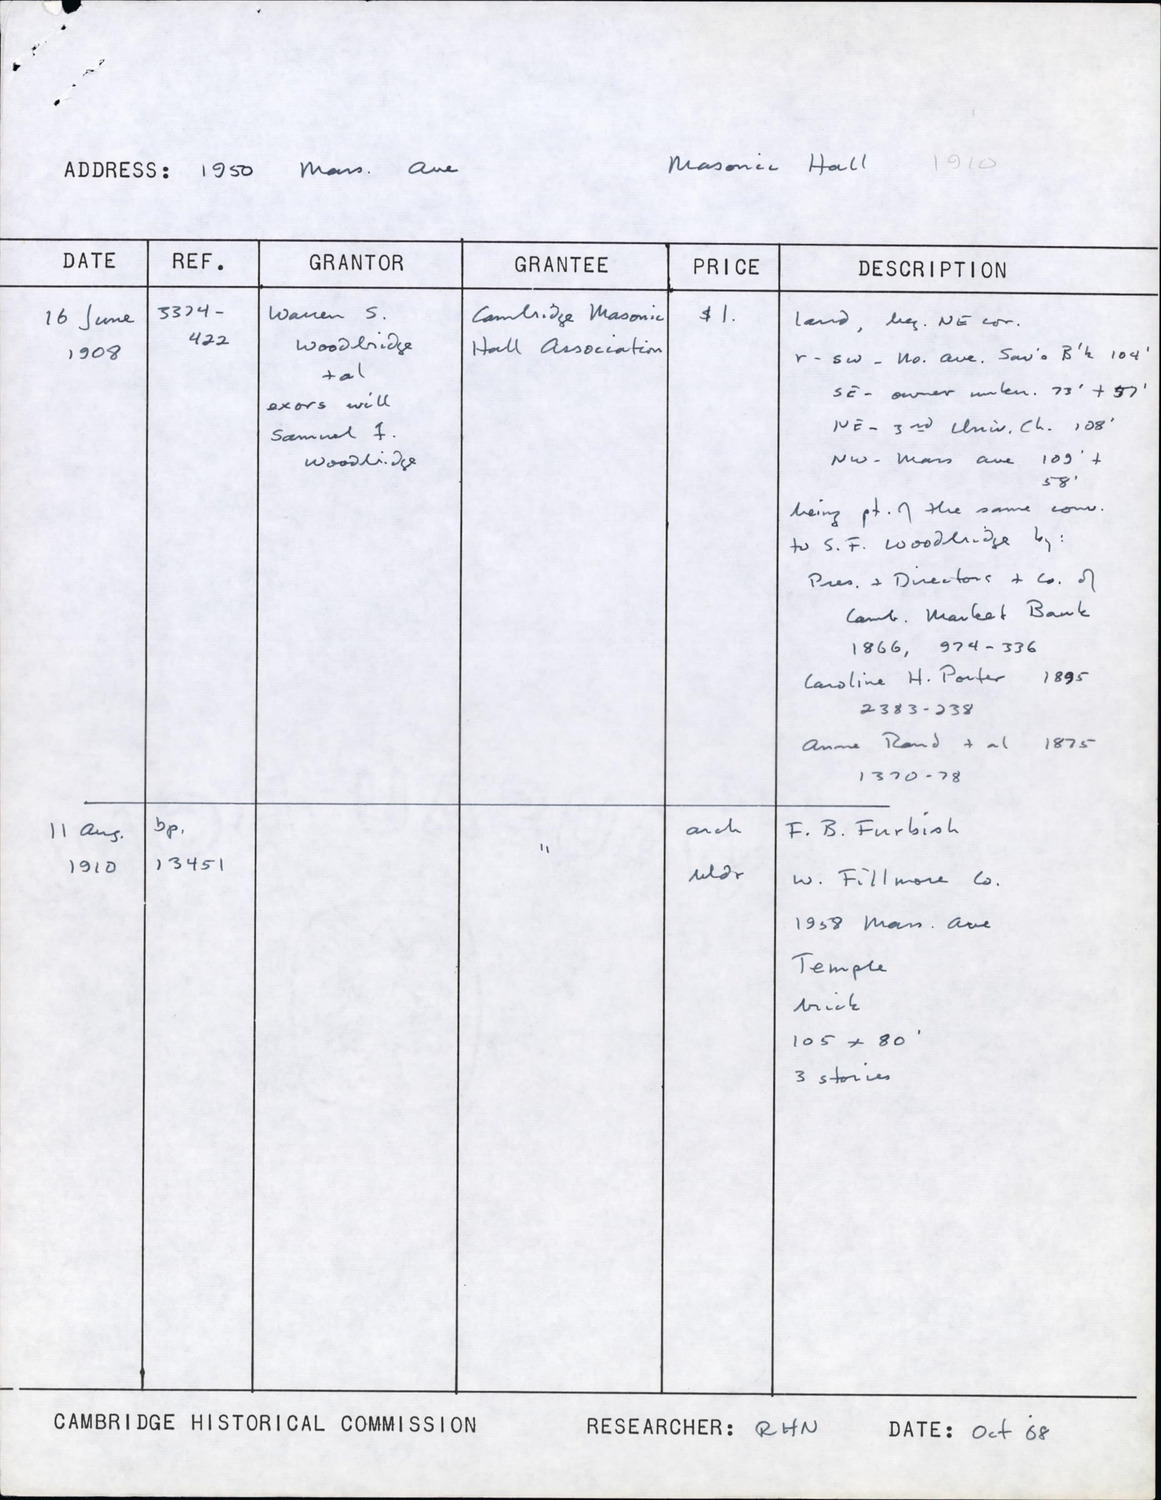 ADDRESS: 1950 Mass. Ave
Masonic Hall 1910
DATE REF. GRANTOR GRANTEE PRICE DESCRIPTION
16 June
1908
3374-
422
Warren S.
Woodbridge
+ al
exors will
Samuel F.
Woodbridge
Cambridge Masonic
Hall Association
$1.
land, beg. NE cor.
r - sw - No. ave. Sav's B'k 104'
SE - owner unkn. 73' + 57'
NE - 3rd Univ. Ch. 108'
NW - Mass ave 109' +
58'
being pt. of the same conv.
to S. F. Woodbridge by:
Pres. + Directors + Co. of
Camb. Market Bank
1866, 974-336
Caroline H. Porter 1895
2383-238
Anne Rand + al 1875
1370-78
11 Aug.
1910
bp.
13451
"
arch
bldr
F. B. Furbish
W. Fillmore Co.
1958 Mass. Ave
Temple
brick
105 x 80'
3 stories
CAMBRIDGE HISTORICAL COMMISSION
RESEARCHER: RHN
DATE: Oct '68